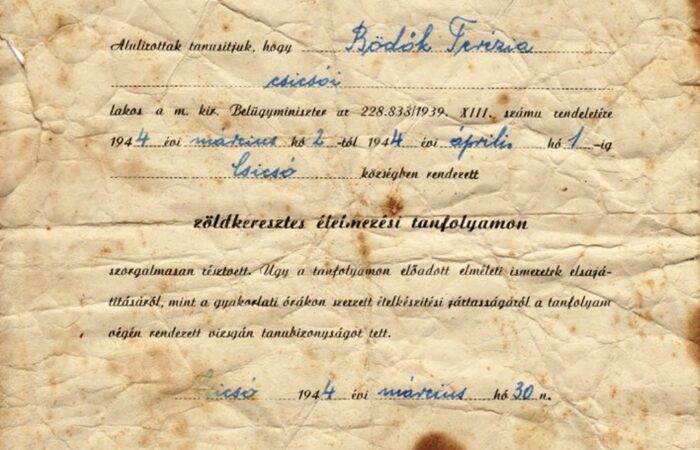 Alulírottak tanusítjuk, hogy Bödők Terézia
csicsói
lakos a m. kir. Belügyminiszter úr 228.833/1939. XIII. számu rendeletére
1944 évi március hó 2-től 1944 évi április hó 1-ig
Csicsó községben rendezett
zöldkeresztes élelmezési tanfolyamon
szorgalmasan résztvett. Úgy a tanfolyamon előadott elméleti ismeretek elsajá-
tításáról, mint a gyakorlati órákon szerzett ételkészítési jártasságáról a tanfolyam
végén rendezett vizsgán tanubizonyságot tett.
Csicsó 1944 évi március hó 30 n.